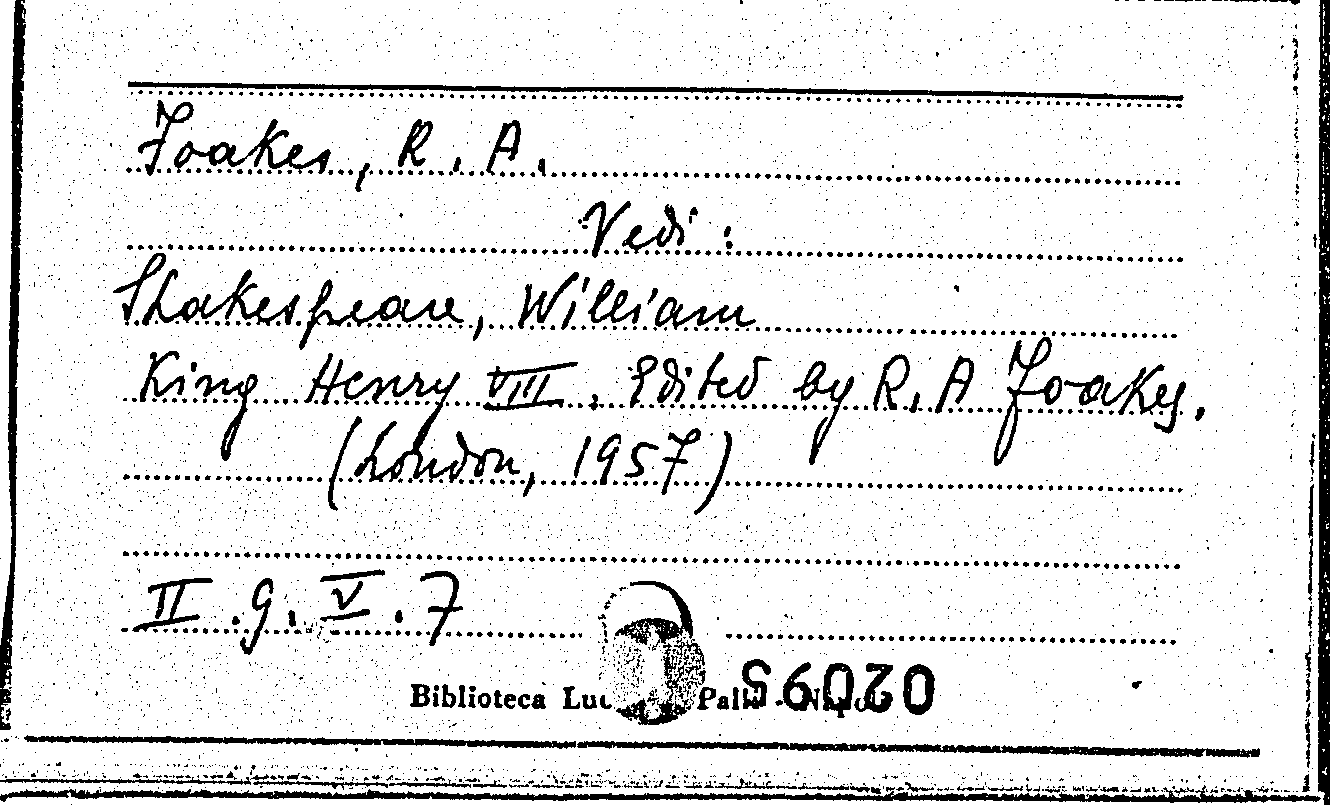 Foakes, R. A.
Vedi :
Shakespeare, William
King Henry VIII. Edited by R. A Foakes.
(London, 1957)
II.9.V.7
Biblioteca Palli - Napoli
02095